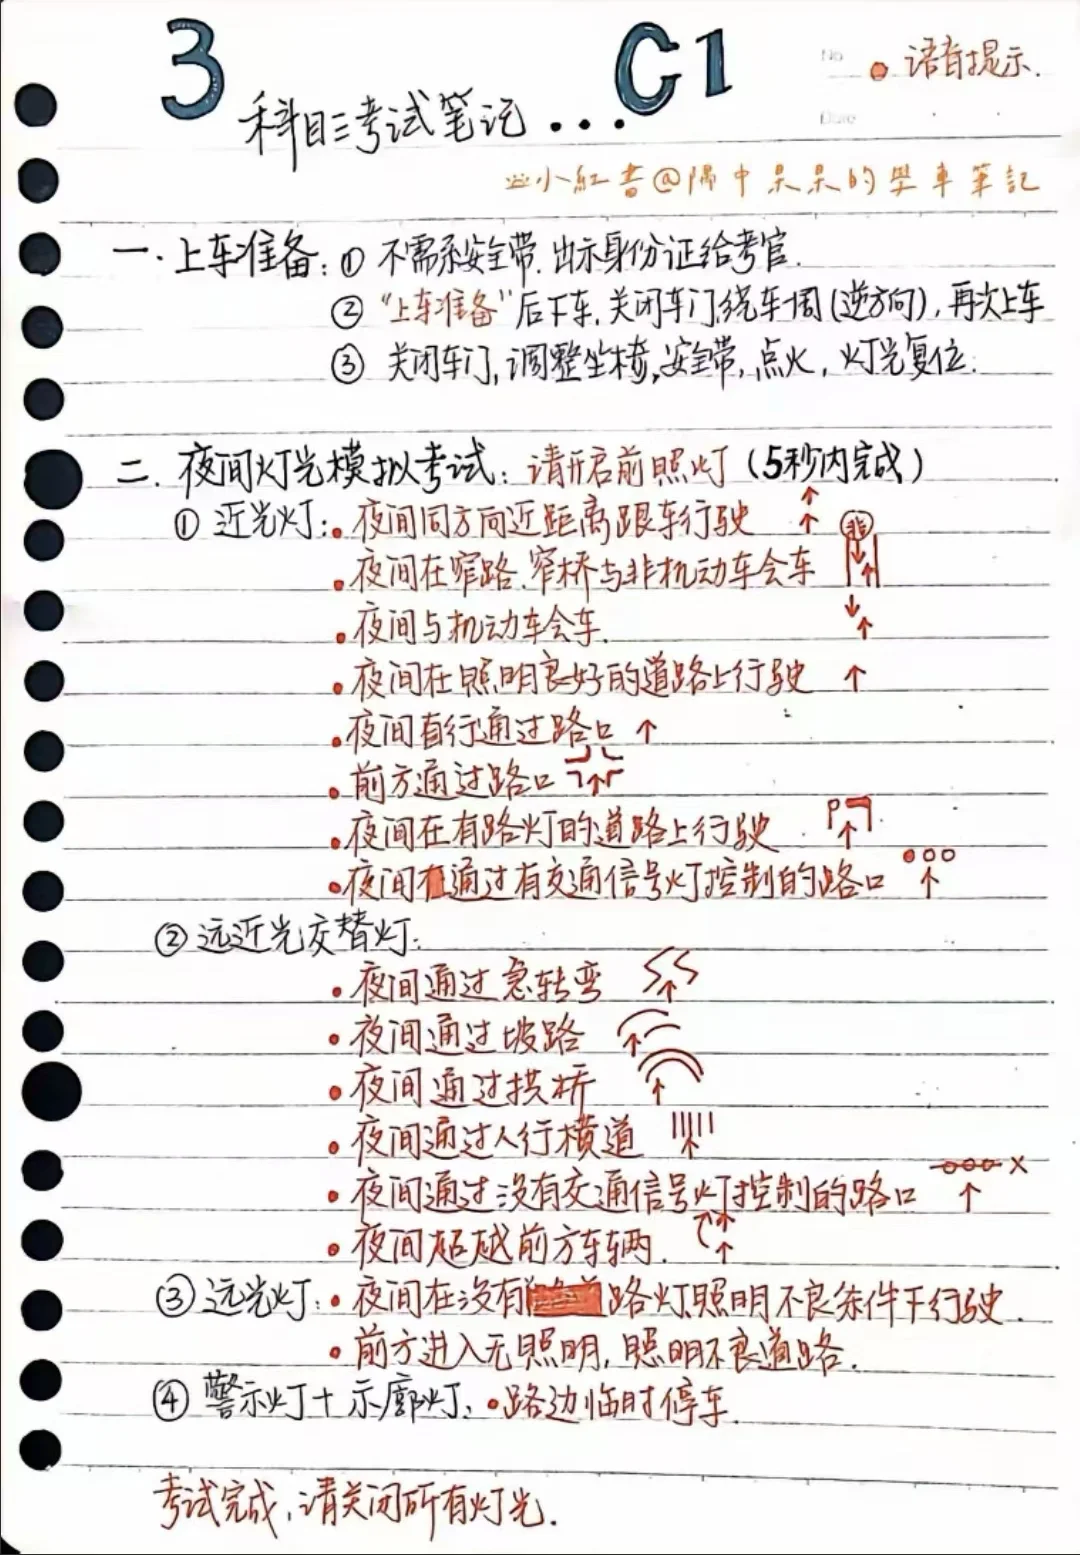 3 C1
No
• 语音提示.
科目三考试笔记...
Date
小紅書@隅中呆呆的學車筆記
一.上车准备:① 不需系安全带.出示身份证给考官.
② "上车准备"后下车,关闭车门,绕车1周(逆方向),再次上车
③ 关闭车门,调整坐椅,安全带,点火,灯光复位.
二.夜间灯光模拟考试:请开启前照灯(5秒内完成)
① 近光灯:•夜间同方向近距离跟车行驶
非
•夜间在窄路.窄桥与非机动车会车
•夜间与机动车会车.
•夜间在照明良好的道路上行驶
•夜间直行通过路口
•前方通过路口
•夜间在有路灯的道路上行驶
•夜间在通过有交通信号灯控制的路口
② 远近光交替灯:
•夜间通过急转弯
•夜间通过坡路
•夜间通过拱桥
•夜间通过人行横道
•夜间通过没有交通信号灯控制的路口
•夜间超越前方车辆.
③ 远光灯:•夜间在没有路灯,照明不良条件下行驶.
•前方进入无照明,照明不良道路.
④ 警示灯+示廓灯:•路边临时停车.
考试完成,请关闭所有灯光.